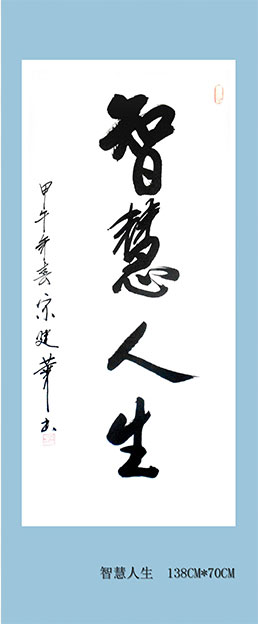 智慧人生
甲午年春宋建華书
智慧人生 138CM*70CM